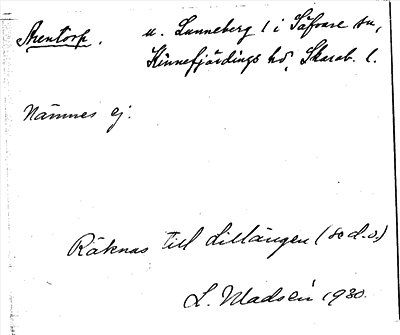 Arentorp. u. Lunneberg 1 i Säfvare sn,
Kinnefjärdings hd, Skarab. l.
Nämnes ej.
Räknas till Lillängen (so d.o.)
L. Madsén 1930.